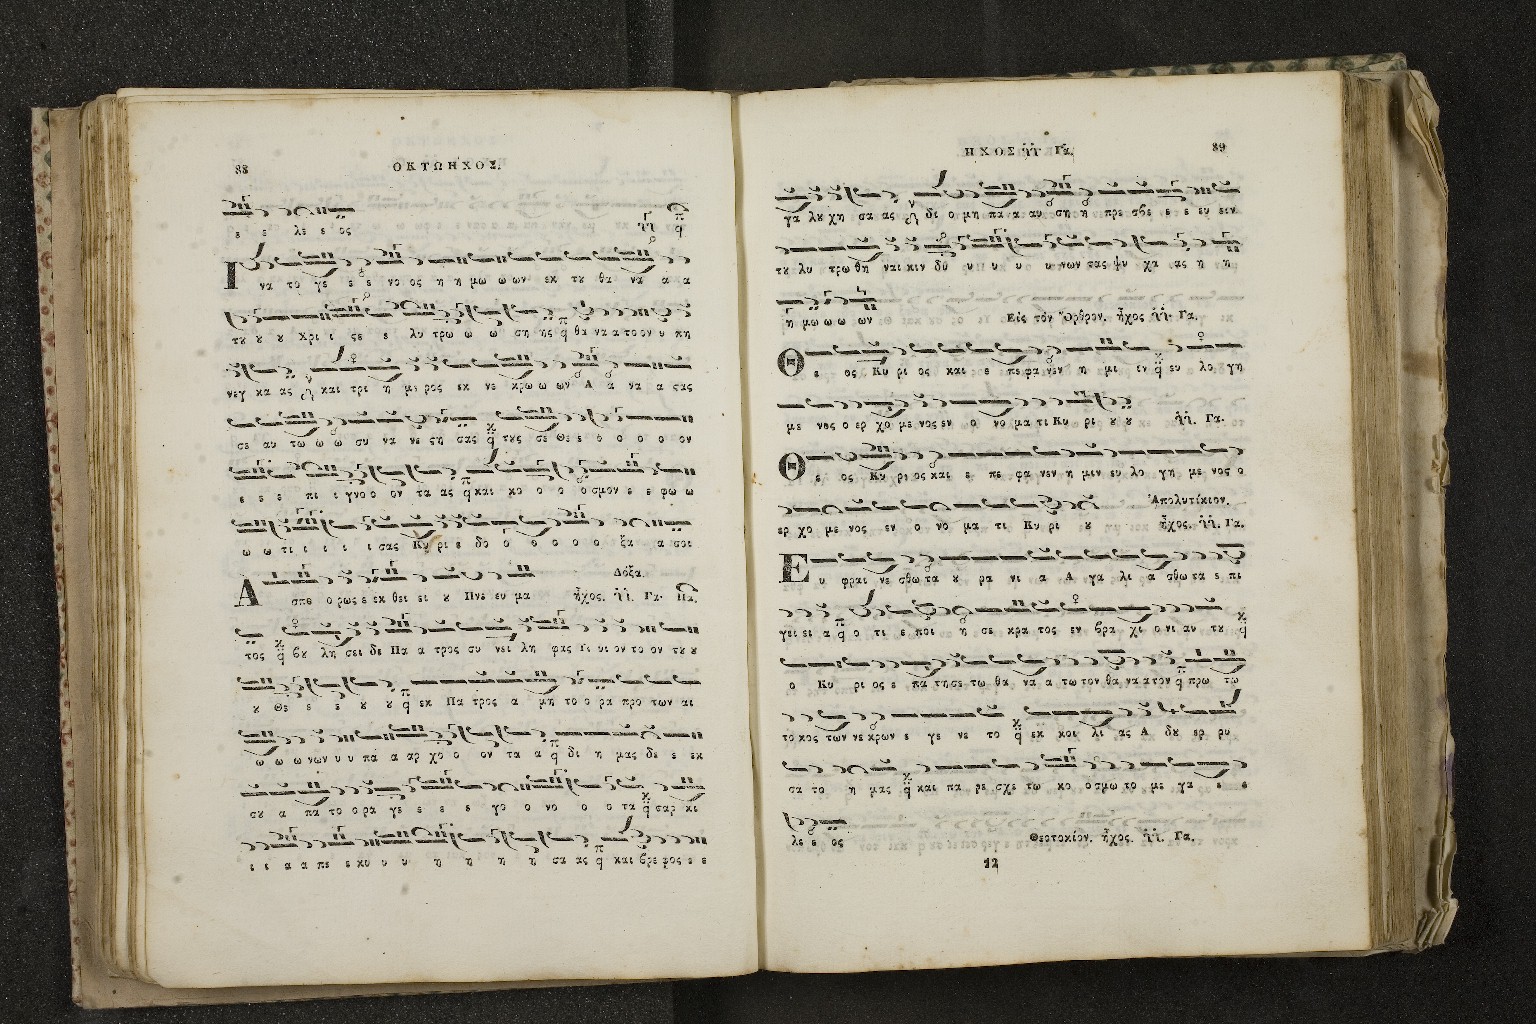 88
ΟΚΤΩΗΧΟΣ.
ε ε λε ε ος
Ι να το γε ε ε νο ος η η μω ω ων εκ τȣ θα να α α
τȣ ȣ ȣ Χρι ι ςε ε λυ τρω ω ω ση ης θα να α το ον υ πη
νεγ κα ας και τρι η με ρος εκ νε κρω ω ων Α α να α ςας
σε αυ τω ω ω συ να νε ςη σας τȣς σε Θε ε ο ο ο ο ον
ε ε ε πι ι γνο ο ον τα ας και κο ο ο ο σμον ε ε φω ω
ω ω τι ι ι ι ι σας Κυ ρι ε δο ο ο ο ο ο ξα α σοι
Δόξα.
Α σπο ο ρως ε εκ θει ει ȣ Πνε ευ μα ἦχος. Γα. Πα.
τος βȣ λη σει δε Πα α τρος συ νει λη φας Υι υι ον το ον τȣ ȣ
ȣ Θε ε ε ȣ ȣ εκ Πα τρος α μη το ο ρα προ των αι
ω ω ω νων υ υ πα α αρ χο ο ον τα α δι η μας δε ε εκ
σȣ α πα το ο ρα γε ε ε ε γο ο νο ο ο τα σαρ κι
ι ι α α πε ε κυ υ υ η η η η σα ας και βρε φος ε ε
ΗΧΟΣ Γα.
89
γα λȣ χη σα ας δι ο μη πα α αυ ση η πρε σβε ε ε ε ευ ειν
τȣ λυ τρω θη ναι κιν δυ υ υ υ υ νων τας ψυ χα ας η η
η μω ω ω ων Εἰς τὸν Ὄρθρον. ἦχος Γα.
Θ ε ος Κυ ρι ος και ε πε φα νεν η μι ιν ευ λο γη
με νος ο ερ χο με νος εν ο νο μα τι Κυ ρι ȣ ȣ Γα.
Θ ε ος Κυ ρι ος και ε πε φα νεν η μιν ευ λο γη με νος ο
ερ χο με νος εν ο νο μα τι Κυ ρι ȣ Ἀπολυτίκιον.
ἦχος. Γα.
Ε υ φραι νε σθω τα ȣ ρα νι α Α γα λι α σθω τα ε πι
γει ει α ο τι ε ποι η σε κρα τος εν βρα χι ο νι αυ τȣ
ο Κυ ρι ος ε πα τη σε τω θα να α τω τον θα να α τον πρω τω
το κος των νε κρων ε γε νε το εκ κοι λι ας Α δȣ ερ ρυ
σα το η μας και πα ρε σχε τω κο ο σμω το με γα ε ε
λε ε ος Θεοτοκίον. ἦχος. Γα.
12